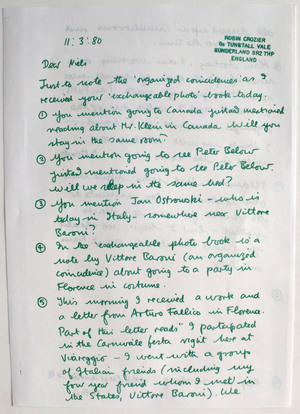 11.3.80
ROBIN CROZIER
6a TUNSTALL VALE
SUNDERLAND SR2 7HP
ENGLAND
Dear Niels
Just to note the 'organized coincidences' as I
received your 'exchangeable photo' book today.
① You mention going to Canada just mentioned
reading about Mr. Klein in Canada Will you
stay in the same room?
② You mention going to see Peter Below
just mentioned going to see Peter Below.
Will we sleep in the same bed?
③ You mention Jan Ostrowski - who is
today in Italy - somewhere near Vittore
Baroni?
④ In the 'exchangeable photo book' is a
note by Vittore Baroni (an organized
coincidence) about going to a party in
Florence in costume.
⑤ This morning I received a work and
a letter from Arturo Fallico in Florence.
Part of this letter reads "I participated
in the Carnevale festa right here at
Viareggio - I went with a group
of Italian friends (including my
four year friend whom I met in
the States, Vittore Baroni). We